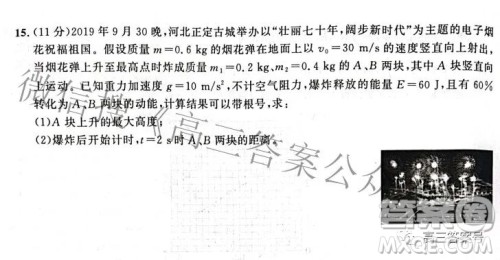 15.(11分)2019年9月30晚,河北正定古城举办以“壮丽七十年,阔步新时代”为主题的电子烟
花祝福祖国。假设质量m=0.6 kg的烟花弹在地面上以v₀=30 m/s的速度竖直向上射出,
当烟花弹上升至最高点时炸成质量m₁=0.2 kg、m₂=0.4 kg的A、B两块,其中A块竖直向
上运动。已知重力加速度g=10 m/s²,不计空气阻力,爆炸释放的能量E=60 J,且有60%
转化为A、B两块的动能,计算结果可以带根号,求:
(1)A块上升的最大高度;
(2)爆炸后开始计时,t=2 s时A、B两块的距离。
微信搜《高三答案公众
答案圈
高三答案号
MXQE.COM